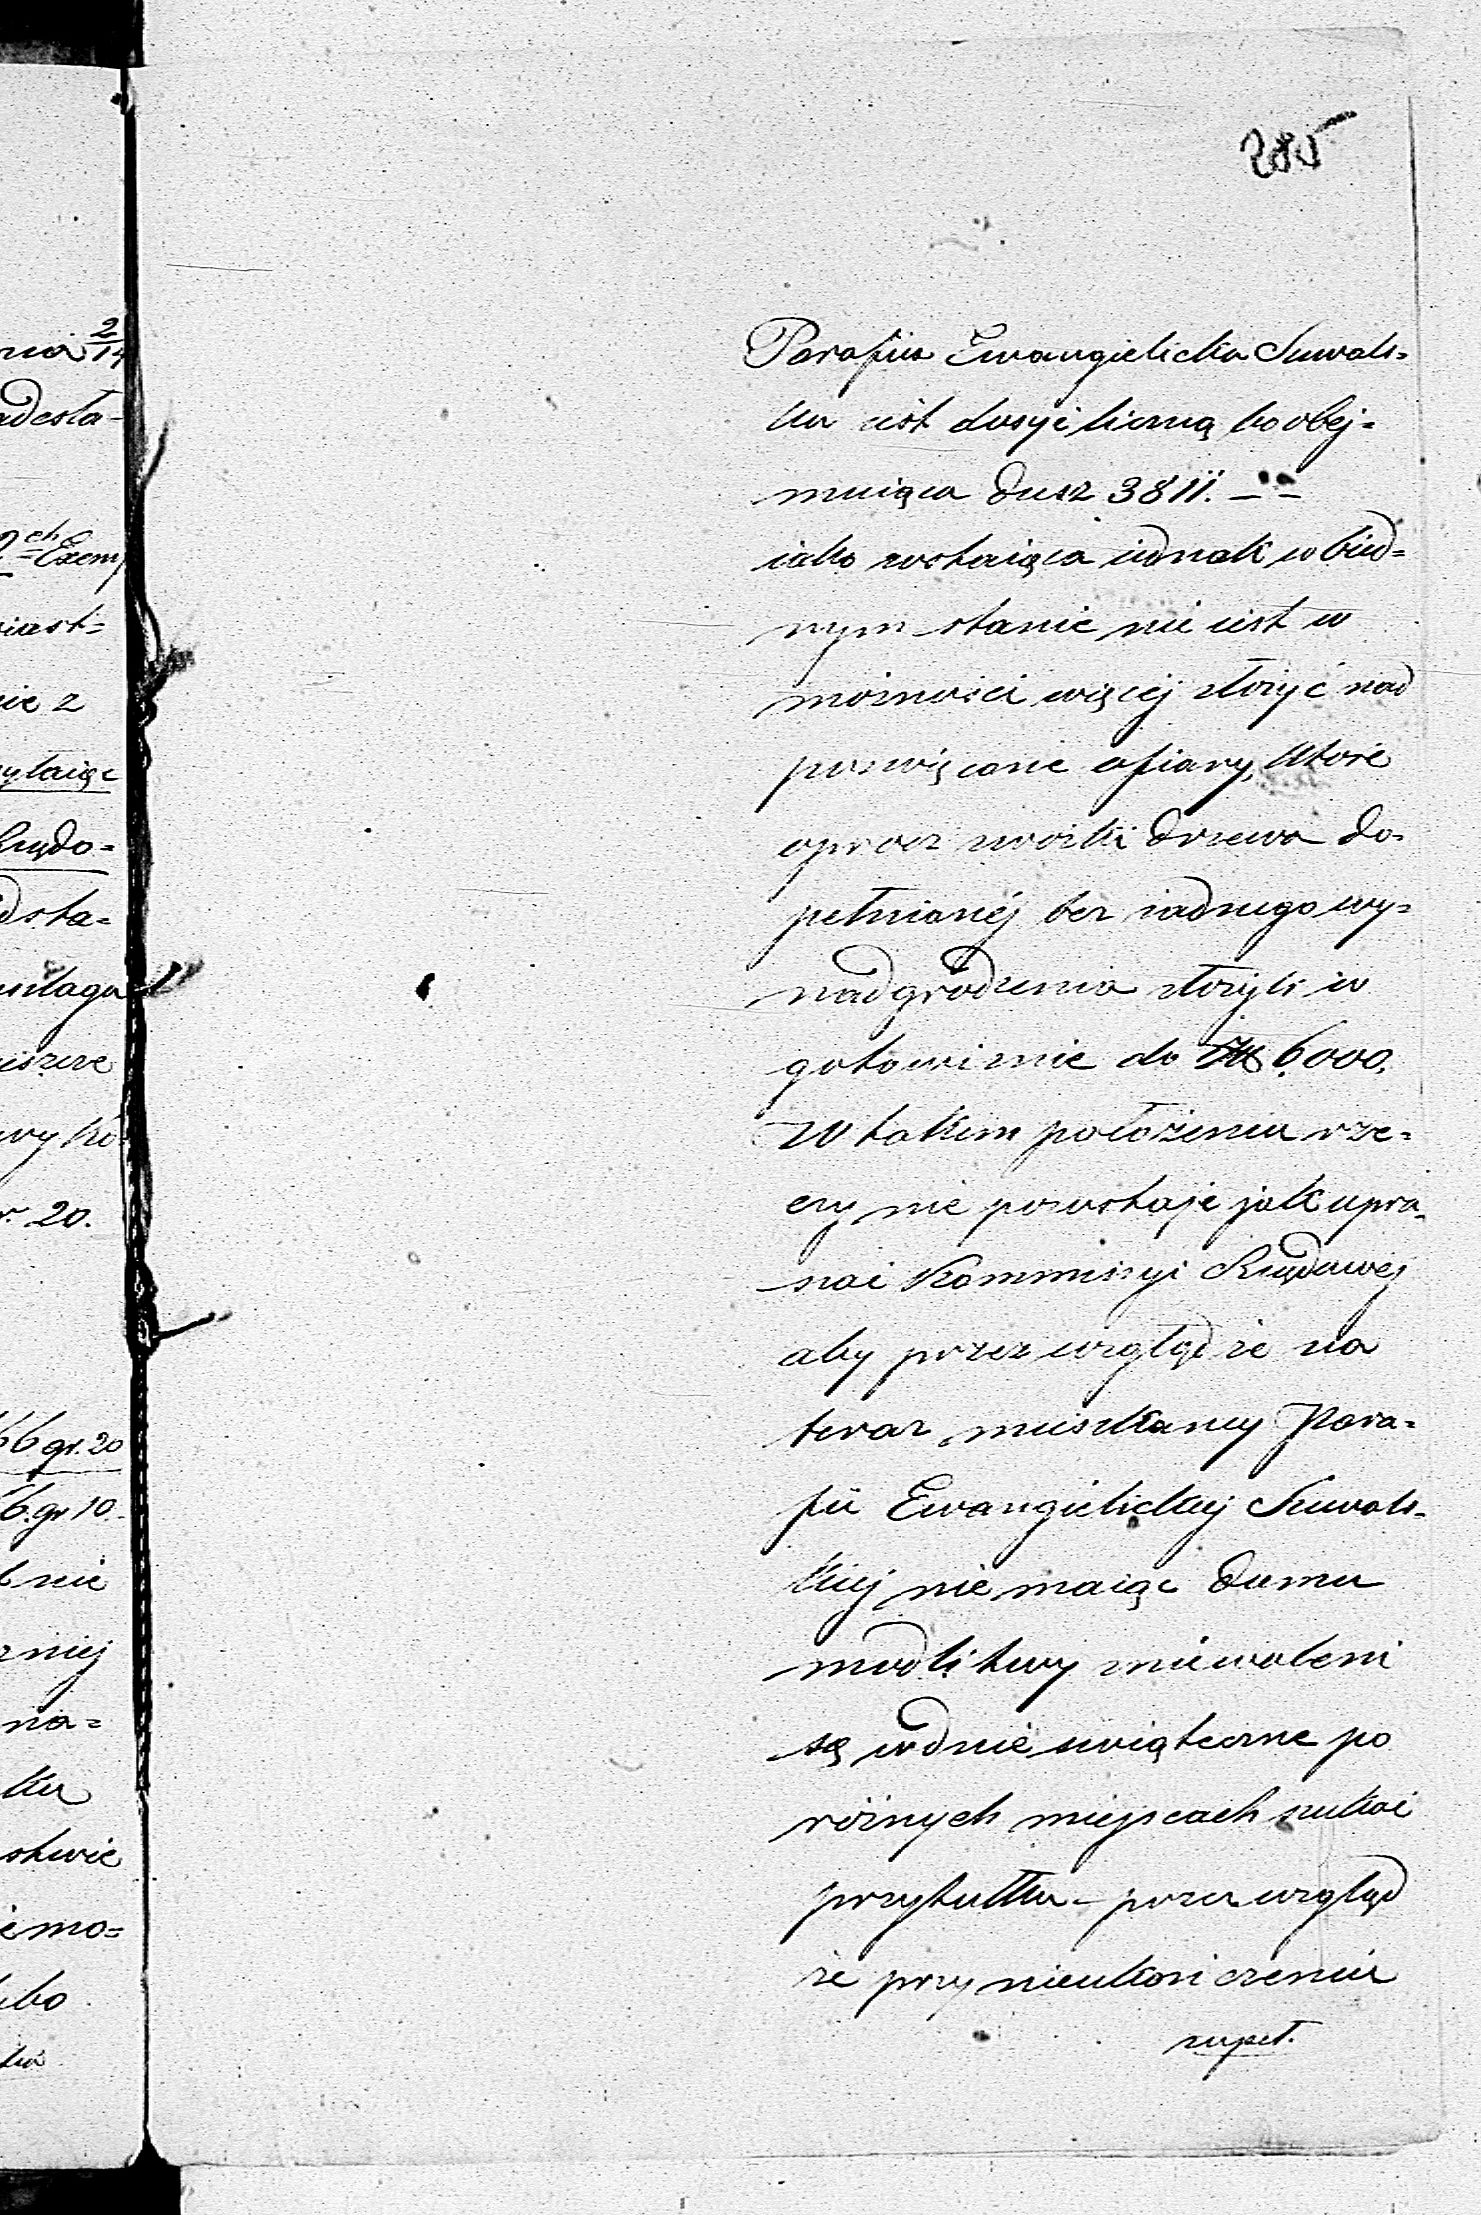 285
Parafia Ewangielicka Suwals=
ka iest dosyć liczną bo obej=
muiąca dusz 3811. – –
iako zostaiąca iednak w bied=
nym stanie nie iest w
możności więcéj złożyć nad
poświęcone ofiary, które
oprocz zwózki drzewa do=
pełnionéj bez żadnego wy=
nadgrodzenia złożyli w
gotowiznie do 6000.
W takiem położeniu rze=
czy nie pozostaje jak upra=
szać Kommissyi Rządowej
aby przez wzgląd że na
teraz mieszkańcy Para=
fii Ewangielickiej Suwals=
kiej nie maiąc domu
modlitwy zniewoleni
są w dnie świąteczne po
różnych miejscach szukać
przytułku – przez wzgląd
że przy nieukończeniu
zupeł.
2/14
adesła-
2ch Exem
iast=
nie z
Rządo=
dsta=
r 20.
66 gr. 20
6. gr 10
nie
rniej
na=
ku
stwie
emo=